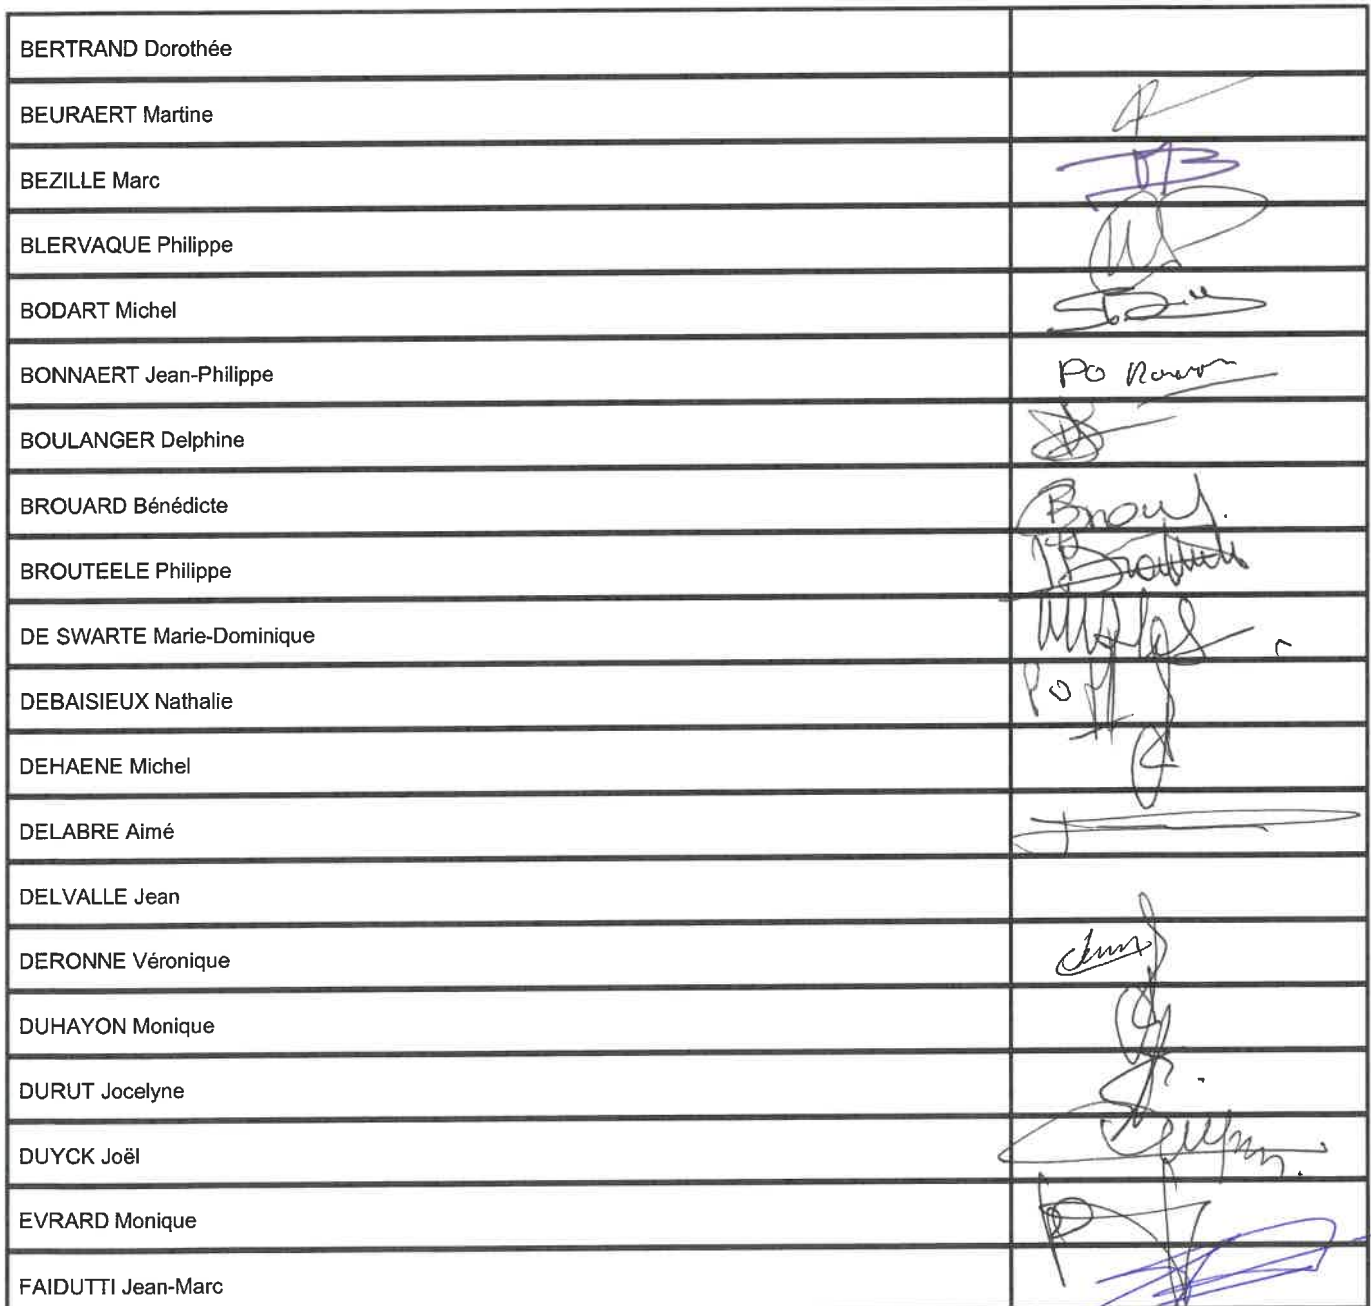 BERTRAND Dorothée
BEURAERT Martine
BEZILLE Marc
BLERVAQUE Philippe
BODART Michel
BONNAERT Jean-Philippe
PO
BOULANGER Delphine
BROUARD Bénédicte
BROUTEELE Philippe
DE SWARTE Marie-Dominique
DEBAISIEUX Nathalie
PO
DEHAENE Michel
DELABRE Aimé
DELVALLE Jean
DERONNE Véronique
DUHAYON Monique
DURUT Jocelyne
DUYCK Joël
EVRARD Monique
FAIDUTTI Jean-Marc